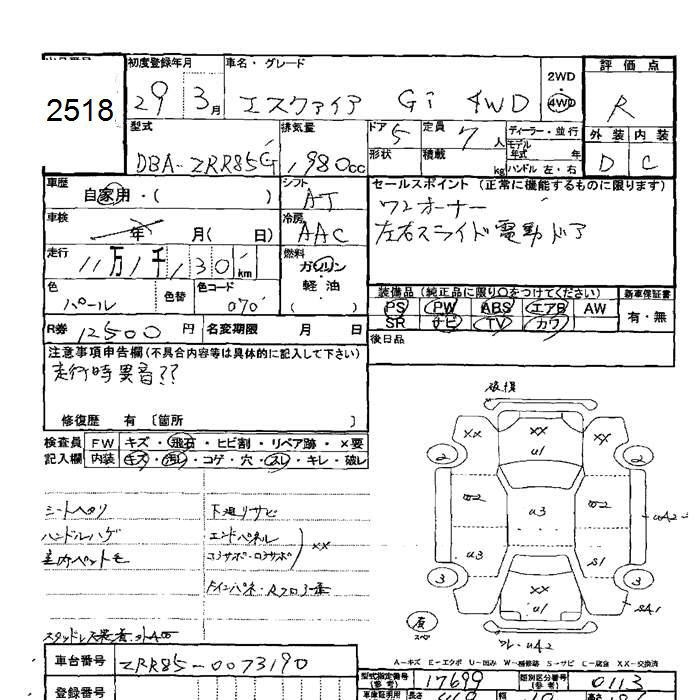 2518
初度登録年月
29 3月
車名・グレード
エスクァイア Gi 4WD
2WD
4WD
評価点
R
型式
DBA-ZRR85G
排気量
1,980cc
ドア
5
形状
定員
7人
積載
kg
ディーラー・並行
モデル
年式 年
ハンドル 左・右
外装 内装
D C
車歴
自家用・( )
シフト
AT
車検
年 月( 日)
冷房
AAC
走行
11万1千130km
燃料
ガソリン
軽油
( )
色
パール
色替
色コード
070
R券 12500円
名変期限 月 日
セールスポイント (正常に機能するものに限ります)
ワンオーナー
左右スライド電動ドア
装備品 (純正品に限り○をつけてください)
PS PW ABS エアB AW
SR ナビ TV カワ
新車保証書
有・無
後日品
注意事項申告欄(不具合内容等は具体的に記入して下さい)
走行時異音??
修復歴 有 〔箇所 〕
検査員 FW キズ・飛石・ヒビ割・リペア跡・×要
記入欄 内装 キズ・汚れ・コゲ・穴・スレ・キレ・破レ
シートヘタリ
ハンドルハゲ
室内ペットモ
下廻りサビ
エンドパネル
コアサポ・ロアサポ
××
破損
XX XX XX
U1
2 2
W2 U3 W2
UA2
U3 S1
3 3
XX
U1
SA1
UA2
A-キズ E-エクボ U-凹み W-補修跡 S-サビ C-腐食 XX-交換済
車台番号 ZRR85-0073190
型式指定番号
(参考)
17699
類別区分番号
(参考)
0113
登録番号